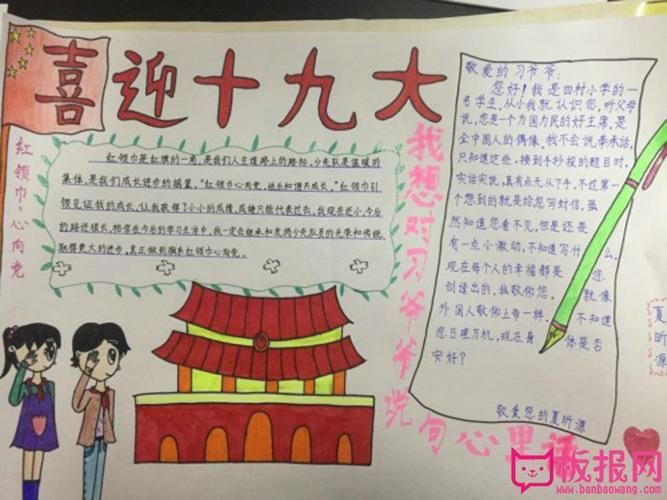 喜迎十九大
红领巾·心向党
红领巾是红旗的一角,是我们人生道路上的路标,少先队是温暖的
集体,是我们成长进步的摇篮。"红领巾心向党,
红领巾引
领见证我的成长,让我取得了小小的成绩,成绩只能代表过去,我现在还小,今后
的路还很长,相信在今后的学习生活中,我一定会继承和发扬少先队员的光荣和传统,
取得更大的进步,真正做到胸系红领巾心向党。
我想对习爷爷说句心里话
敬爱的习爷爷:
您好!我是田村小学的一
名学生,从小我就认识您,听父母
说,您是一个为国为民的好主席,是
全中国人的偶像,我不会说奉承话,
只知道这些,接到手抄报的题目时,
实话实说,真有点无从下手,不过第一
个想到的就是给您写封信,虽
然知道您看不见,但是还是
有一点小激动,不知道写什么,
现在每个人的幸福都是您
创造出的,我敬仰您,就像
外国人敬仰上帝一样,不知道
您日理万机,现在身体是否
安好?
敬爱您的夏昕源
夏
昕
源
板报网
www.banbaowang.com